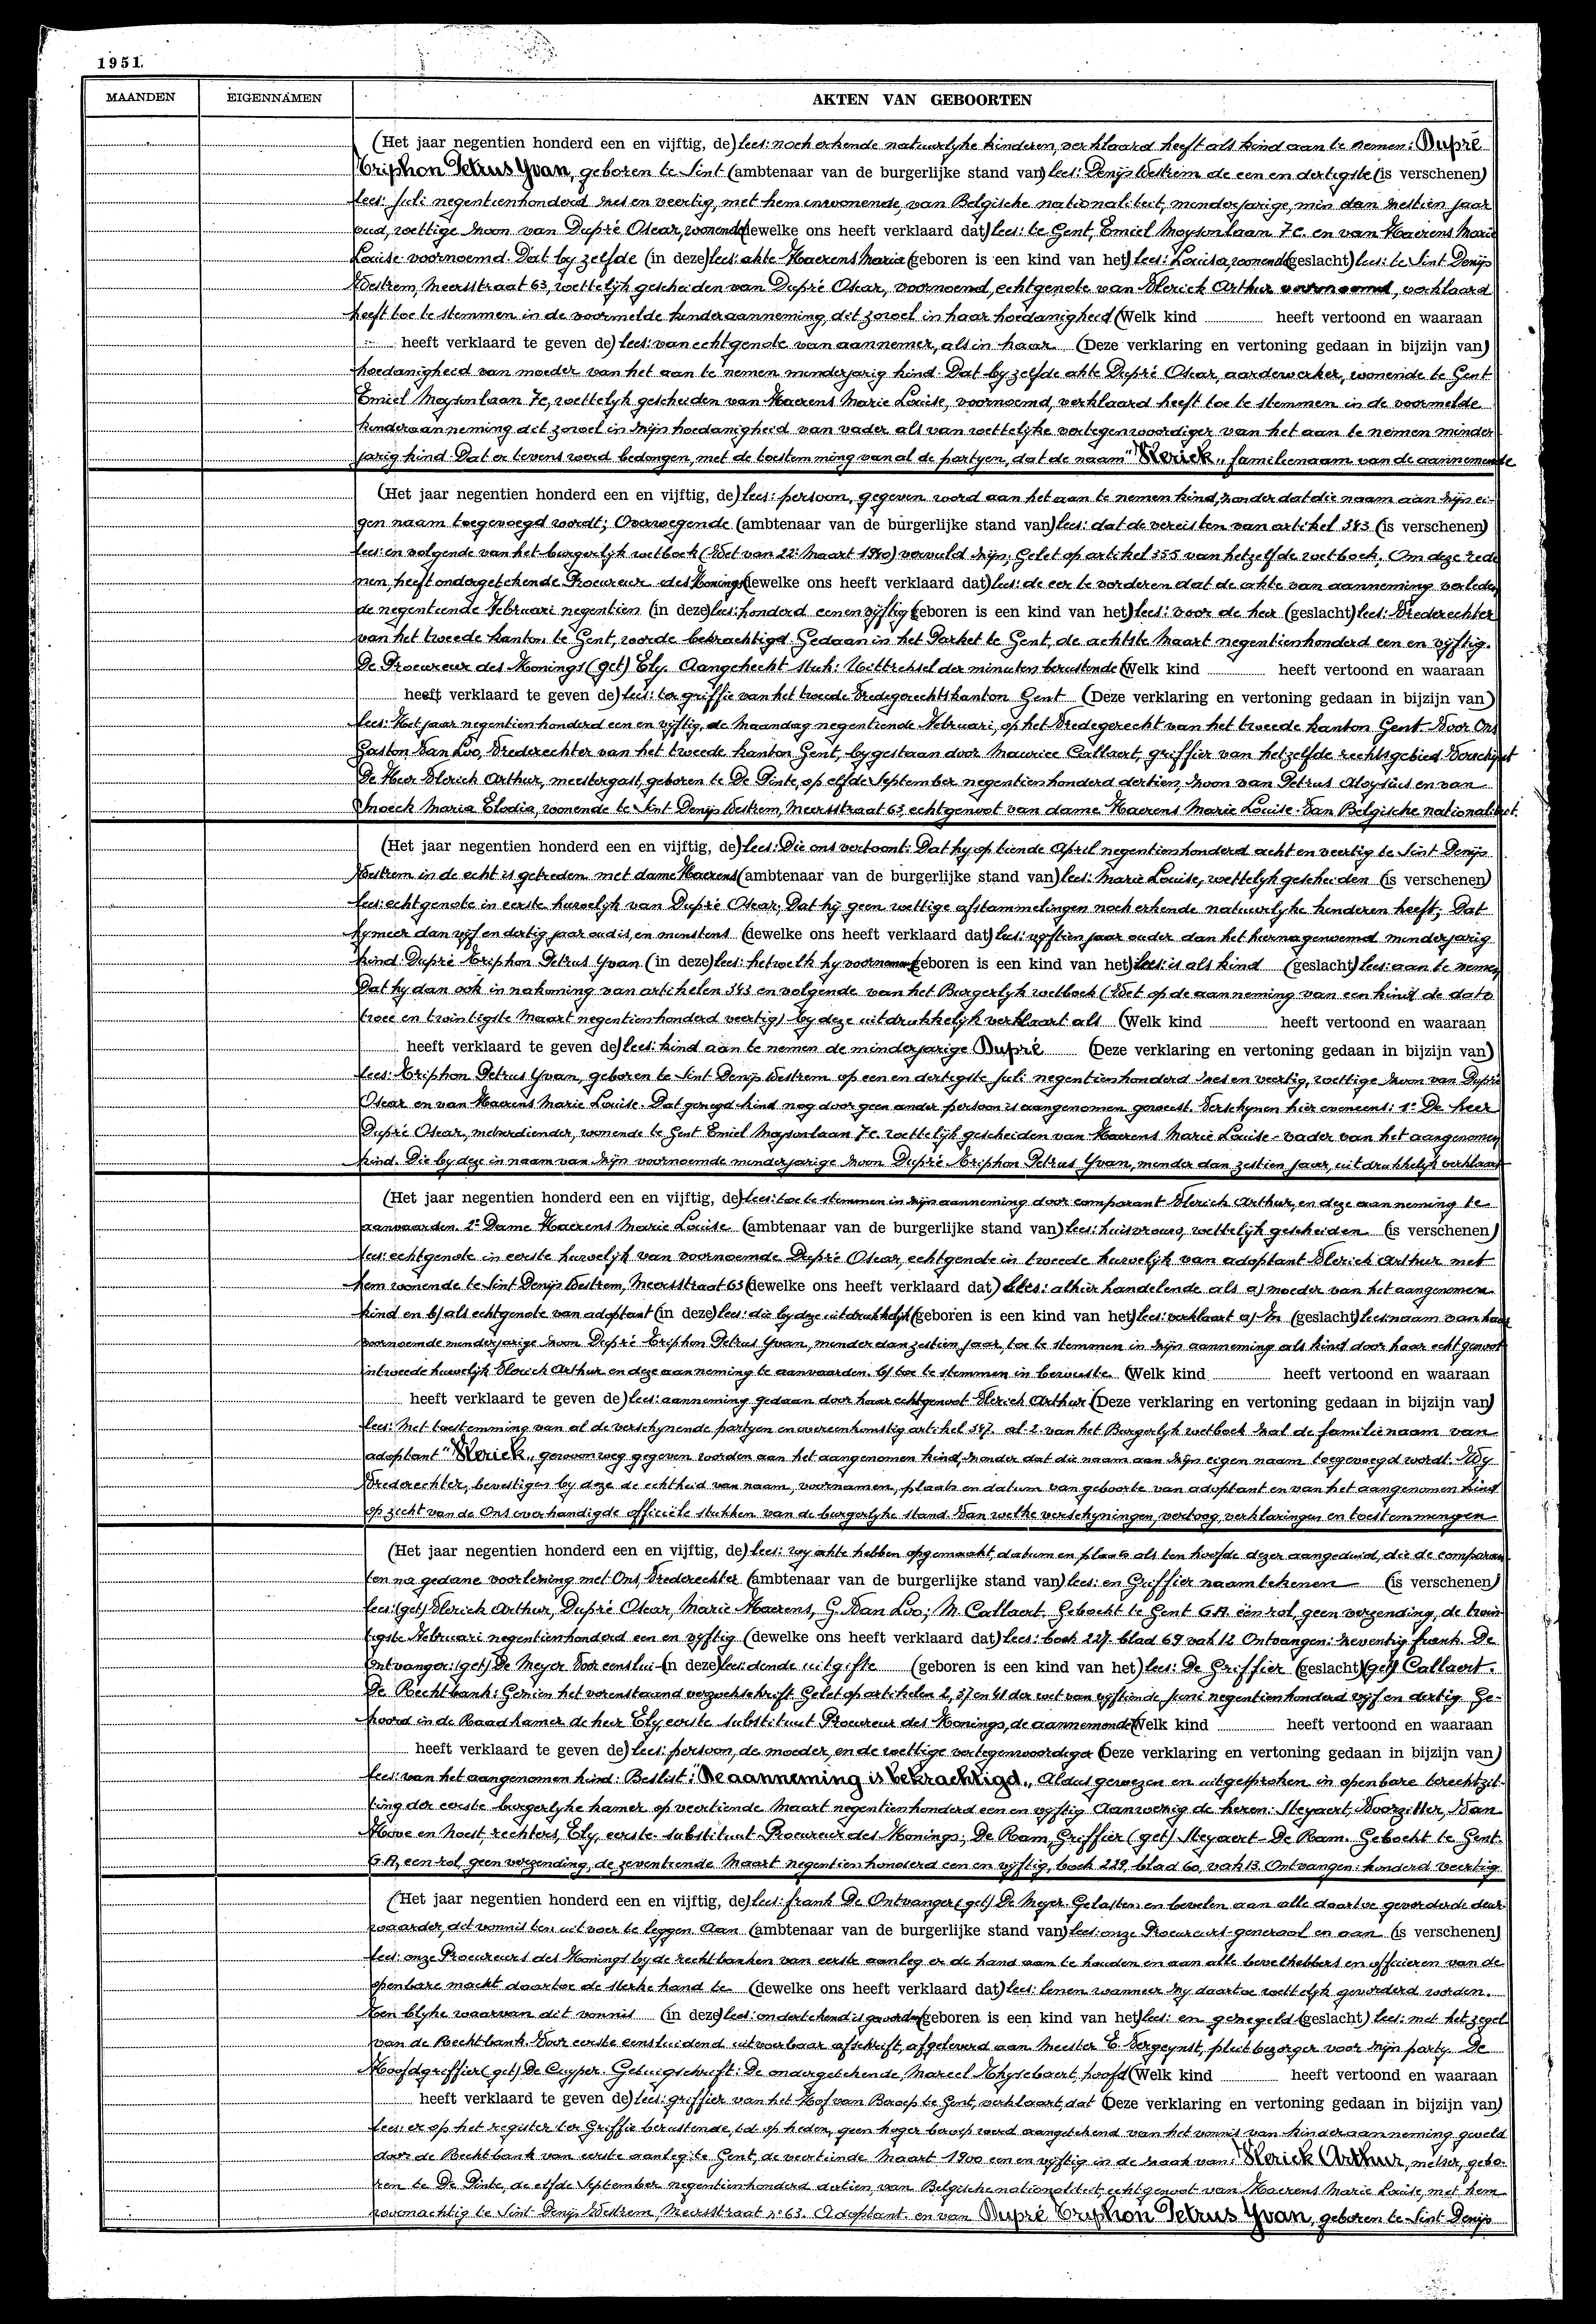 1951.
MAANDEN
EIGENNAMEN
AKTEN VAN GEBOORTEN
(Het jaar negentien honderd een en vijftig, de) lees: noch erkende natuurlyke kinderen, verklaard heeft als kind aan te nemen: Dupré
Triphon Petrus Yvan, geboren te Sint (ambtenaar van de burgerlijke stand van) lees: Denijs Westrem de een en dertigste (is verschenen)
lees: Juli negentienhonderd zes en veertig, met hem inwonende, van Belgische nationaliteit, minderjarige, min dan zestien jaar
oud, wettige zoon van Dupré Oscar, wonende (dewelke ons heeft verklaard dat) lees: te Gent, Emiel Moysonlaan 7c. en van Haerens Marie
Louise voornoemd. Dat by zelfde (in deze) lees: akte Haerens Maria (geboren is een kind van het) lees: Louisa, wonende (geslacht) lees: te Sint Denijs
Westrem, Meersstraat 63, wettelijk gescheiden van Dupré Oscar, voornoemd, echtgenote van Vlerick Arthur voornoemd, verklaard
heeft toe te stemmen in de voormelde kinderaanneming, dit zowel in haar hoedanigheid (Welk kind heeft vertoond en waaraan
heeft verklaard te geven de) lees: van echtgenote van aannemer, als in haar (Deze verklaring en vertoning gedaan in bijzijn van)
hoedanigheid van moeder van het aan te nemen minderjarig kind. Dat by zelfde akte Dupré Oscar, aardewerker, wonende te Gent
Emiel Moysonlaan 7c, wettelyk gescheiden van Haerens Marie Louise, voornoemd, verklaard heeft toe te stemmen in de voormelde
kinderaanneming dit zowel in zijn hoedanigheid van vader als van wettelyke vertegenwoordiger van het aan te nemen minder
jarig kind. Dat er tevens werd bedongen, met de toestemming van al de partyen, dat de naam "Vlerick" familienaam van de aannemende
(Het jaar negentien honderd een en vijftig, de) lees: persoon, gegeven word aan het aan te nemen kind, zonder dat die naam aan zijn ei-
gen naam toegevoegd wordt; Overwegende (ambtenaar van de burgerlijke stand van) lees: dat de vereisten van artikel 343 (is verschenen)
lees: en volgende van het burgerlyk wetboek (Wet van 22 Maart 1940) vervuld zijn; Gelet op artikel 355 van hetzelfde wetboek, Om deze rede
nen, heeft ondergetekende Procureur des Konings (dewelke ons heeft verklaard dat) lees: de eer te vorderen dat de akte van aanneming verleden
de negentiende Februari negentien (in deze) lees: honderd een en vyftig (geboren is een kind van het) lees: voor de heer (geslacht) lees: Vrederechter
van het tweede kanton te Gent, worde bekrachtigd. Gedaan in het Parket te Gent, de achtste Maart negentienhonderd een en vyftig.
De Procureur des Konings (get) Ely. Aangehecht stuk: Uittreksel der minuten berustende (Welk kind heeft vertoond en waaraan
heeft verklaard te geven de) lees: ter griffie van het tweede Vredegerechtskanton Gent (Deze verklaring en vertoning gedaan in bijzijn van)
lees: Het jaar negentienhonderd een en vyftig, de Maandag negentiende Februari, op het Vredegerecht van het tweede kanton Gent. Voor Ons
Gaston Van Loo, Vrederechter van het tweede kanton Gent, bygestaan door Maurice Callaert, griffier van hetzelfde rechtsgebied Verschynt
De Heer Vlerick Arthur, meestergast, geboren te De Pinte, op elfde September negentienhonderd dertien, zoon van Petrus Aloysius en van
Snoeck Maria Elodia, wonende te Sint Denijs Westrem, Meersstraat 63, echtgenoot van dame Haerens Marie Louise. Van Belgische nationaliteit.
(Het jaar negentien honderd een en vijftig, de) lees: Die ons vertoont: Dat hy op tiende April negentienhonderd acht en veertig te Sint Denijs
Westrem in de echt is getreden met dame Haerens (ambtenaar van de burgerlijke stand van) lees: Marie Louise, wettelyk gescheiden (is verschenen)
lees: echtgenote in eerste huwelyk van Dupré Oscar; Dat hij geen wettige afstammelingen noch erkende natuurlyke kinderen heeft; Dat
hy meer dan vyf en dertig jaar oud is, en minstens (dewelke ons heeft verklaard dat) lees: vyftien jaar ouder dan het hiernagenoemd minderjarig
kind: Dupré Triphon Petrus Yvan (in deze) lees: hetwelk hy voornemens (geboren is een kind van het) lees: is als kind (geslacht) lees: aan te nemen
Dat hy dan ook in nakoming van artikelen 343 en volgende van het Burgerlyk wetboek (Wet op de aanneming van een kind de dato
twee en twintigste Maart negentienhonderd veertig) by deze uitdrukkelyk verklaart als (Welk kind heeft vertoond en waaraan
heeft verklaard te geven de) lees: kind aan te nemen de minderjarige Dupré (Deze verklaring en vertoning gedaan in bijzijn van)
lees: Triphon Petrus Yvan, geboren te Sint Denijs Westrem op een en dertigste Juli negentienhonderd zes en veertig, wettige zoon van Dupré
Oscar en van Haerens Marie Louise. Dat gezegd kind nog door geen ander persoon is aangenomen geweest. Verschynen hier eveneens: 1° De heer
Dupré Oscar, metserdiender, wonende te Gent Emiel Moysonlaan 7c. wettelijk gescheiden van Haerens Marie Louise - vader van het aangenomen
kind. Die by deze in naam van zijn voornoemde minderjarige zoon Dupré Triphon Petrus Yvan, minder dan zestien jaar, uitdrukkelijk verklaart
(Het jaar negentien honderd een en vijftig, de) lees: toe te stemmen in zijn aanneming door comparant Vlerick Arthur, en deze aanneming te
aanvaarden. 2° Dame Haerens Marie Louise (ambtenaar van de burgerlijke stand van) lees: huisvrouw, wettelyk gescheiden (is verschenen)
lees: echtgenote in eerste huwelijk van voornoemde Dupré Oscar, echtgenote in tweede huwelijk van adoptant Vlerick Arthur met
hem wonende te Sint Denijs Westrem, Meersstraat 63 (dewelke ons heeft verklaard dat) lees: alhier handelende als a) moeder van het aangenomen
kind en b) als echtgenote van adoptant (in deze) lees: die by deze uitdrukkelijk (geboren is een kind van het) lees: verklaart a) In (geslacht) lees: naam van haar
voornoemde minderjarige zoon Dupré Triphon Petrus Yvan, minder dan zestien jaar, toe te stemmen in zijn aanneming als kind door haar echtgenoot
in tweede huwelijk Vlerick Arthur en deze aanneming te aanvaarden. b) toe te stemmen in bewuste (Welk kind heeft vertoond en waaraan
heeft verklaard te geven de) lees: aanneming gedaan door haar echtgenoot Vlerick Arthur (Deze verklaring en vertoning gedaan in bijzijn van)
lees: Met toestemming van al de verschynende partyen en overeenkomstig artikel 347 al. 2 van het Burgerlyk wetboek zal de familienaam van
adoptant "Vlerick" gewoonweg gegeven worden aan het aangenomen kind, zonder dat die naam aan zijn eigen naam toegevoegd wordt. Wy
Vrederechter, bevestigen by deze de echtheid van naam, voornamen, plaats en datum van geboorte van adoptant en van het aangenomen kind
op zicht van de Ons overhandigde officiële stukken van de burgerlyke stand. Van welke verschyningen, vertoog, verklaringen en toestemmingen
(Het jaar negentien honderd een en vijftig, de) lees: wy akte hebben opgemaakt, datum en plaats als ten hoofde dezer aangeduid, die de comparan
ten na gedane voorlezing met Ons, Vrederechter (ambtenaar van de burgerlijke stand van) lees: en Griffier naamtekenen (is verschenen)
lees: (get) Vlerick Arthur, Dupré Oscar, Marie Haerens, G. Van Loo; M. Callaert. Geboekt te Gent G.A. een rol, geen verzending, de twin-
tigste Februari negentienhonderd een en vyftig (dewelke ons heeft verklaard dat) lees: boek 227 blad 69 vak 12 Ontvangen: zeventig frank. De
Ontvanger: (get) De Meyer. Voor eenslui- (in deze) lees: dende uitgifte (geboren is een kind van het) lees: De Griffier (geslacht) (get) Callaert.
De Rechtbank: Gezien het vorenstaand verzoekschrift. Gelet op artikelen 2, 37 en 41 der wet van vyftiende Juni negentienhonderd vyf en dertig. Ge-
hoord in de Raadkamer de heer Ely eerste substituut Procureur des Konings, de aannemende (Welk kind heeft vertoond en waaraan
heeft verklaard te geven de) lees: persoon, de moeder, en de wettige vertegenwoordiger (Deze verklaring en vertoning gedaan in bijzijn van)
lees: van het aangenomen kind: Beslist: "De aanneming is bekrachtigd". Aldus gewezen en uitgesproken in openbare terechtzit-
ting der eerste burgerlyke kamer op veertiende Maart negentienhonderd een en vyftig. Aanwezig de heren: Steyaert, Voorzitter, Van
Hove en Noest, rechters, Ely, eerste substituut Procureur des Konings; De Ram, Griffier (get) Steyaert - De Ram. Geboekt te Gent.
G.A, een rol, geen verzending, de zeventiende Maart negentienhonderd een en vyftig, boek 229, blad 60, vak 13. Ontvangen: honderd veertig
(Het jaar negentien honderd een en vijftig, de) lees: frank De Ontvanger (get) De Meyer. Gelasten en bevelen aan alle daartoe gevorderde deur
waarder, dit vonnis ten uitvoer te leggen. Aan (ambtenaar van de burgerlijke stand van) lees: onze Procureurs-generaal en aan (is verschenen)
lees: onze Procureurs des Konings by de rechtbanken van eerste aanleg er de hand aan te houden en aan alle bevelhebbers en officieren van de
openbare macht daartoe de sterke hand te (dewelke ons heeft verklaard dat) lees: lenen wanneer zy daartoe wettelyk gevorderd worden.
Ten blyke waarvan dit vonnis (in deze) lees: ondertekend is geworden (geboren is een kind van het) lees: en gezegeld (geslacht) lees: met het zegel
van de Rechtbank. Voor eerste eensluidend uitvoerbaar afschrift, afgeleverd aan Meester E. Vergeynst, pleitbezorger voor zijn party. De
Hoofdgriffier (get) De Cuyper. Getuigschrift: De ondergetekende, Marcel Ghyselaert, hoofd (Welk kind heeft vertoond en waaraan
heeft verklaard te geven de) lees: griffier van het Hof van Beroep te Gent, verklaart, dat (Deze verklaring en vertoning gedaan in bijzijn van)
lees: er op het register ter Griffie berustende, tot op heden, geen hoger beroep werd aangetekend van het vonnis van kinderaanneming geveld
door de Rechtbank van eerste aanleg te Gent, de veertiende Maart 1900 een en vyftig in de zaak van: Vlerick Arthur, metser, gebo-
ren te De Pinte, de elfde September negentienhonderd dertien, van Belgische nationaliteit, echtgenoot van Haerens Marie Louise, met hem
woonachtig te Sint Denijs Westrem, Meersstraat n° 63. Adoptant. en van Dupré Triphon Petrus Yvan, geboren te Sint Denijs